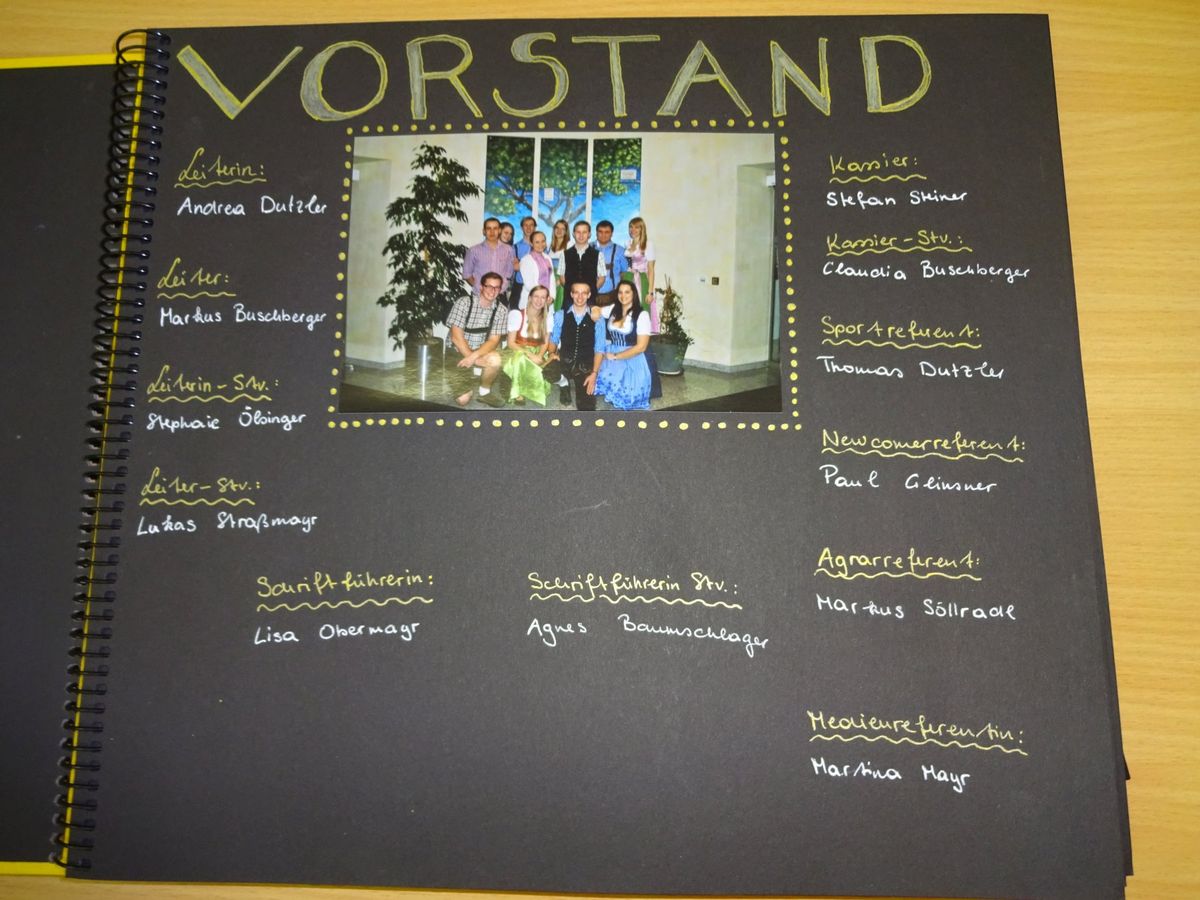 VORSTAND
Leiterin:
Andrea Dutzler
Leiter:
Markus Buschberger
Leiterin-Stv.:
Stephaie Ölsinger
Leiter-Stv.:
Lukas Straßmayr
Schriftführerin:
Lisa Obermayr
Schriftführerin Stv.:
Agnes Baumschlager
Kassier:
Stefan Steiner
Kassier-Stv.:
Claudia Buschberger
Sportreferent:
Thomas Dutzler
Newcomerreferent:
Paul Glinsner
Agrarreferent:
Markus Söllradl
Medienreferentin:
Martina Mayr